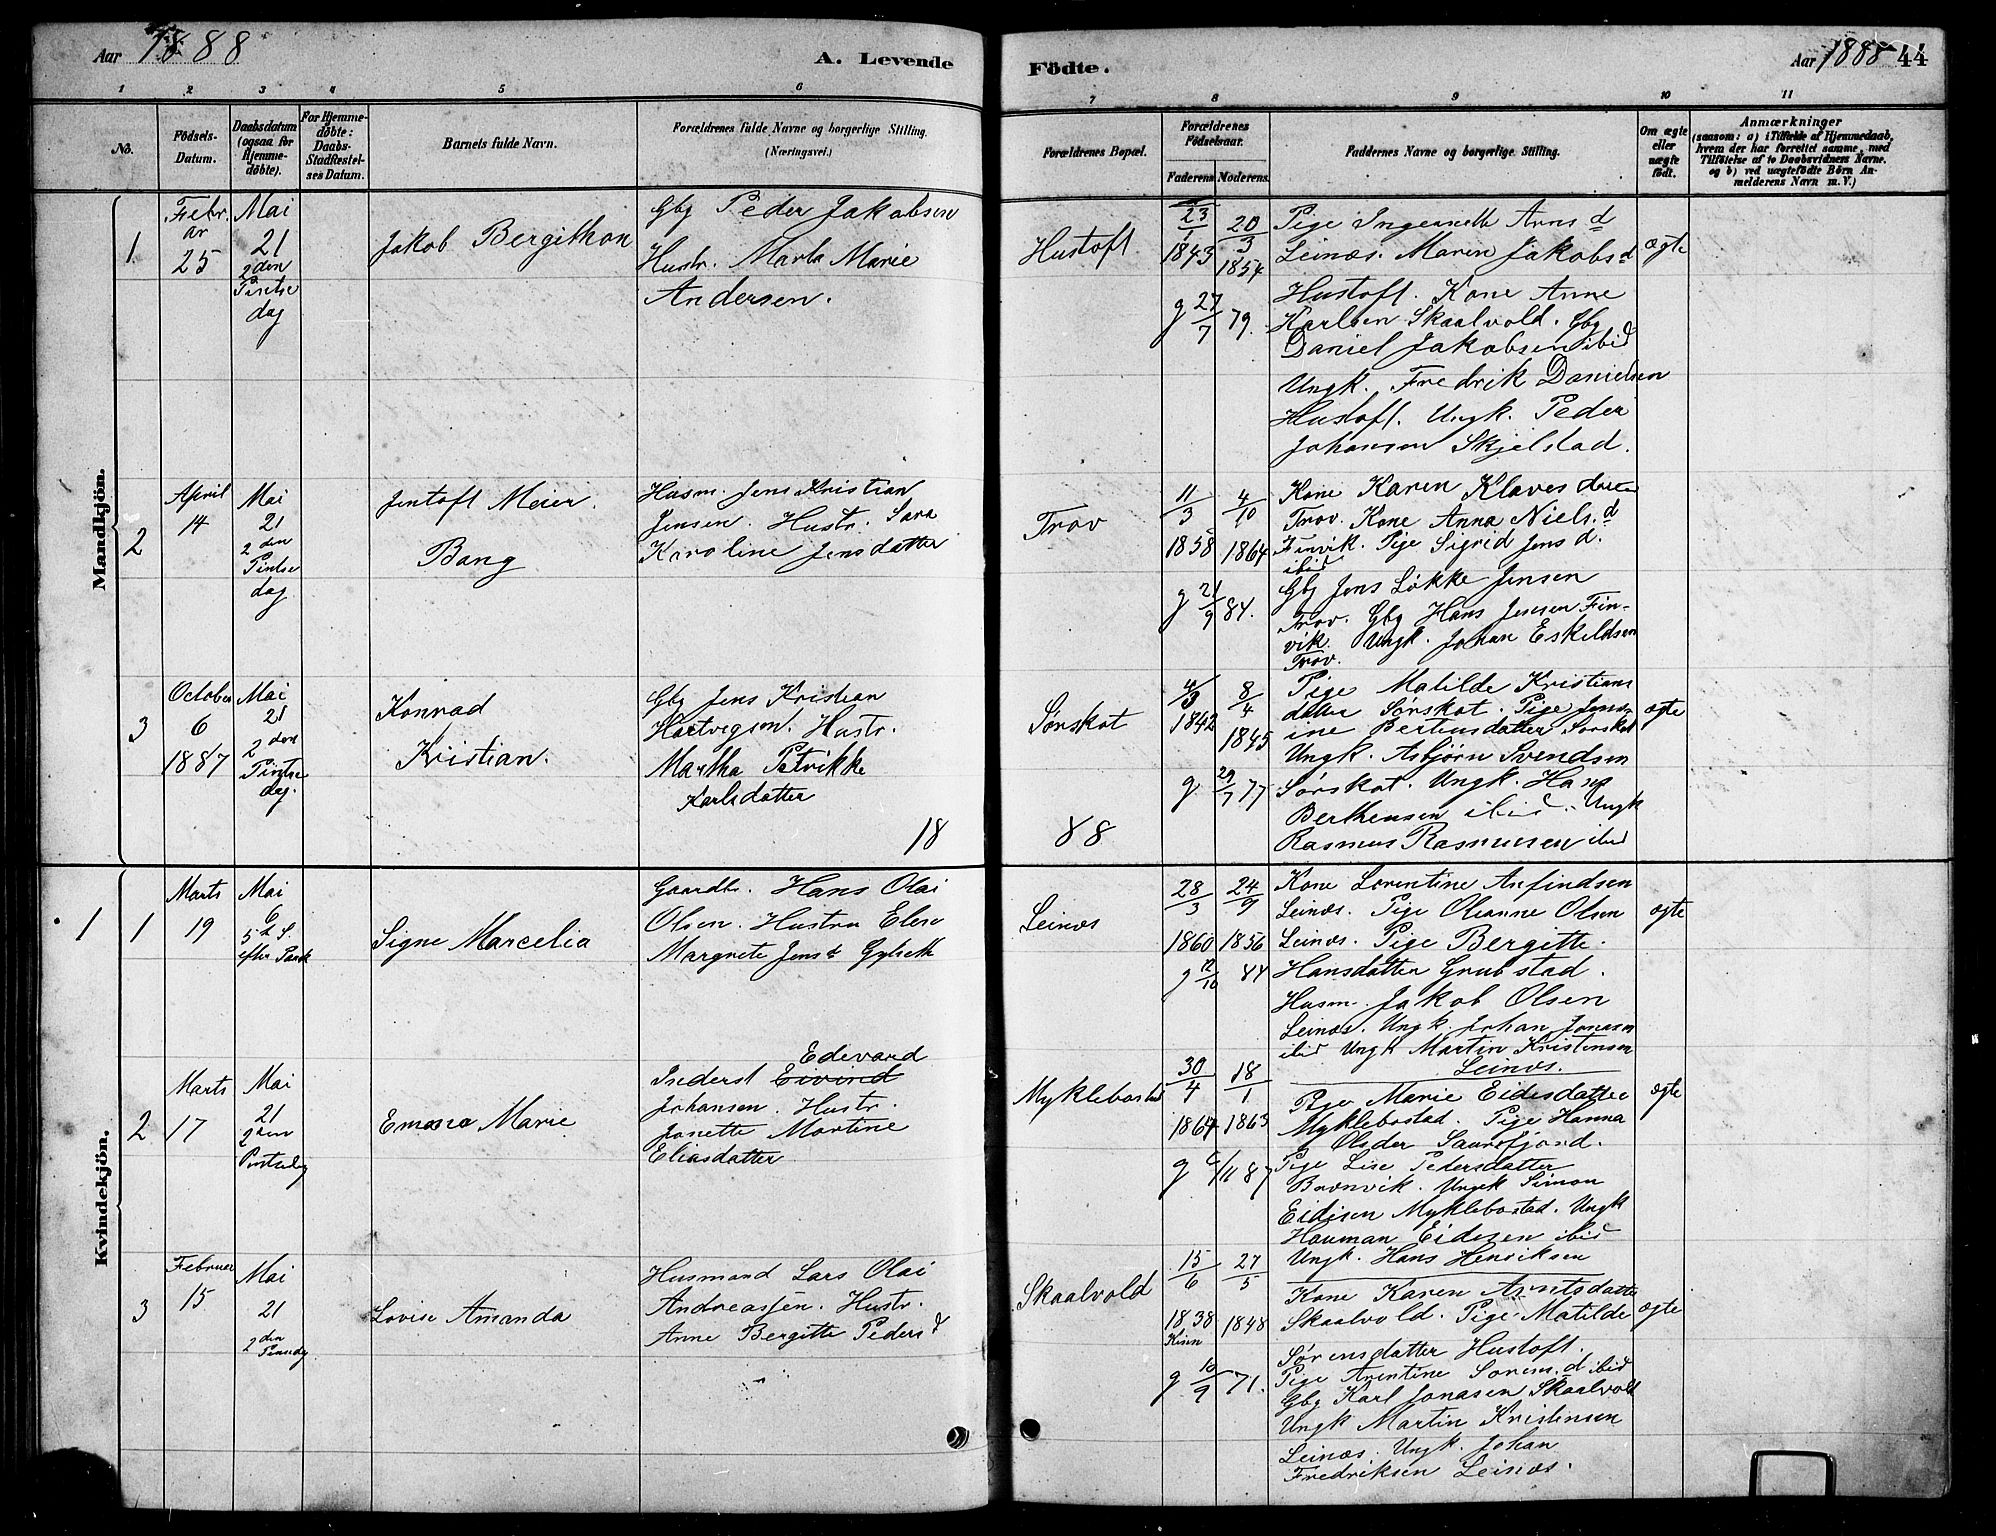 Aar 1888
A. Levende
Födte.
Aar 1888 44
1 2 3 4 5 6 7 8 9 10 11
No.
Födsels-
Datum.
Daabsdatum
(ogsaa for
Hjemme-
döbte).
For Hjemme-
döbte:
Daabs-
Stadfæstel-
ses Datum.
Barnets fulde Navn.
Forældrenes fulde Navne og borgerlige Stilling.
(Næringsvei.)
Forældrenes Bopæl.
Forældrenes
Födselsaar.
Faderens
Moderens.
Faddernes Navne og borgerlige Stilling.
Om ægte
eller
uægte
födt.
Anmærkninger
(saasom: a) i Tilfælde af Hjemmedaab,
hvem der har forrettet samme, med
Tilföielse af to Daabsvidners Navne,
og b) ved uægtefödte Börn An-
melderens Navn m. V.)
Mandkjön.
1
Febr.
ar
25
Mai
21
2den
Pintse
dag
Jakob Bergithon
Gbg Peder Jakobsen
Hustr. Marta Marie
Andersen.
Hustoft
23/1
1843
20/3
1854
g 27/7 79.
Pige Ingeanette Arns d
Leinæs. Maren Jakobs d
Hustoft. Kone Anne
Karlsen Skaalvold. Gbg
Daniel Jakobsen ibid
Ungk. Fredrik Danielsen
Hustoft. Ungk. Peder
Johansen Skjelstad.
ægte
2
April
14
Mai
21
2den
Pintse
dag
Jentoft Meier
Bang
Husm. Jens Kristian
Jensen. Hustr. Sara
Karoline Jensdatter
Trov
11/3
1858
4/10
1864
g 21/9 84.
Kone Karen Klaves datter
Trov. Kone Anna Niels. d
Finvik. Pige Sigrid Jens d.
ibid
Gbg Jens Løkke Jensen
Trov. Gbg Hans Jensen Fin-
vik. Ungk. Johan Eskildsen
Trov.
3
October
6
1887
Mai
21
2den
Pintse
dag.
Konrad
Kristian.
Gbg Jens Kristian
Hartvigsen. Hustr.
Martha Petrikke
Karlsdatter
Sørskot
4/3
1842
8/4
1845
g 29/7 77
Pige Matilde Kristians
datter Sørskot. Pige Jens-
ine Bertiusdatter Sørskot
Ungk. Asbjørn Svendsen
Sørskot. Ungk. Hans
Berthensen ibid. Ungk
Rasmus Rasmussen ibid
ægte
18
88
Kvindekjön.
1
1
Marts
19
Mai
6
5 S.
efter Paask
Signe Marcelia
Gaardbr. Hans Olai
Olsen. Hustru Elen
Margrete Jens d Gylseth
Leinæs
28/3
1860
24/9
1856
g 12/10 84
Kone Lorentine Anfindsen
Leinæs. Pige Oleanne Olsen
Leinæs. Pige Bergitte
Hansdatter Grubstad.
Husm. Jakob Olsen
Leinæs. Ungk. Johan Jonasen
ibid Ungk Martin Kristensen
Leinæs.
ægte
2
Marts
17
Mai
21
2den
Pintsedag
Emma Marie
Edevard
Inderst Eivind
Johansen. Hustr.
Janette Martine
Eliasdatter
Myklebostad
30/4
1864
18/1
1863
g 6/11 87
Pige Marie Eidesdatter
Myklebostad. Pige Hanna
Olsder Saursfjord.
Pige Lise Pedersdatter
Bronvik. Ungk Simon
Eidisen Myklebostad. Ungk
Hauman Eidesen ibid
Ungk. Hans Henriksen
ægte
3
Februar
15
Mai
21
2den
Lovise Amanda
Husmand Lars Olai
Andreassen. Hustr.
Anne Bergitte Peders d
Skaalvold
15/6
1838
27/5
1848
g 10/9 71.
Kone Karen Arntsdatter
Skaalvold. Pige Matilde
Sørensdatter Hustoft.
Pige Arentine Sørens. d ibid
Gbg Karl Jonasen Skaalvold
Ungk Martin Kristensen
Leinæs. Ungk. Johan
Fredriksen Leinæs.
ægte